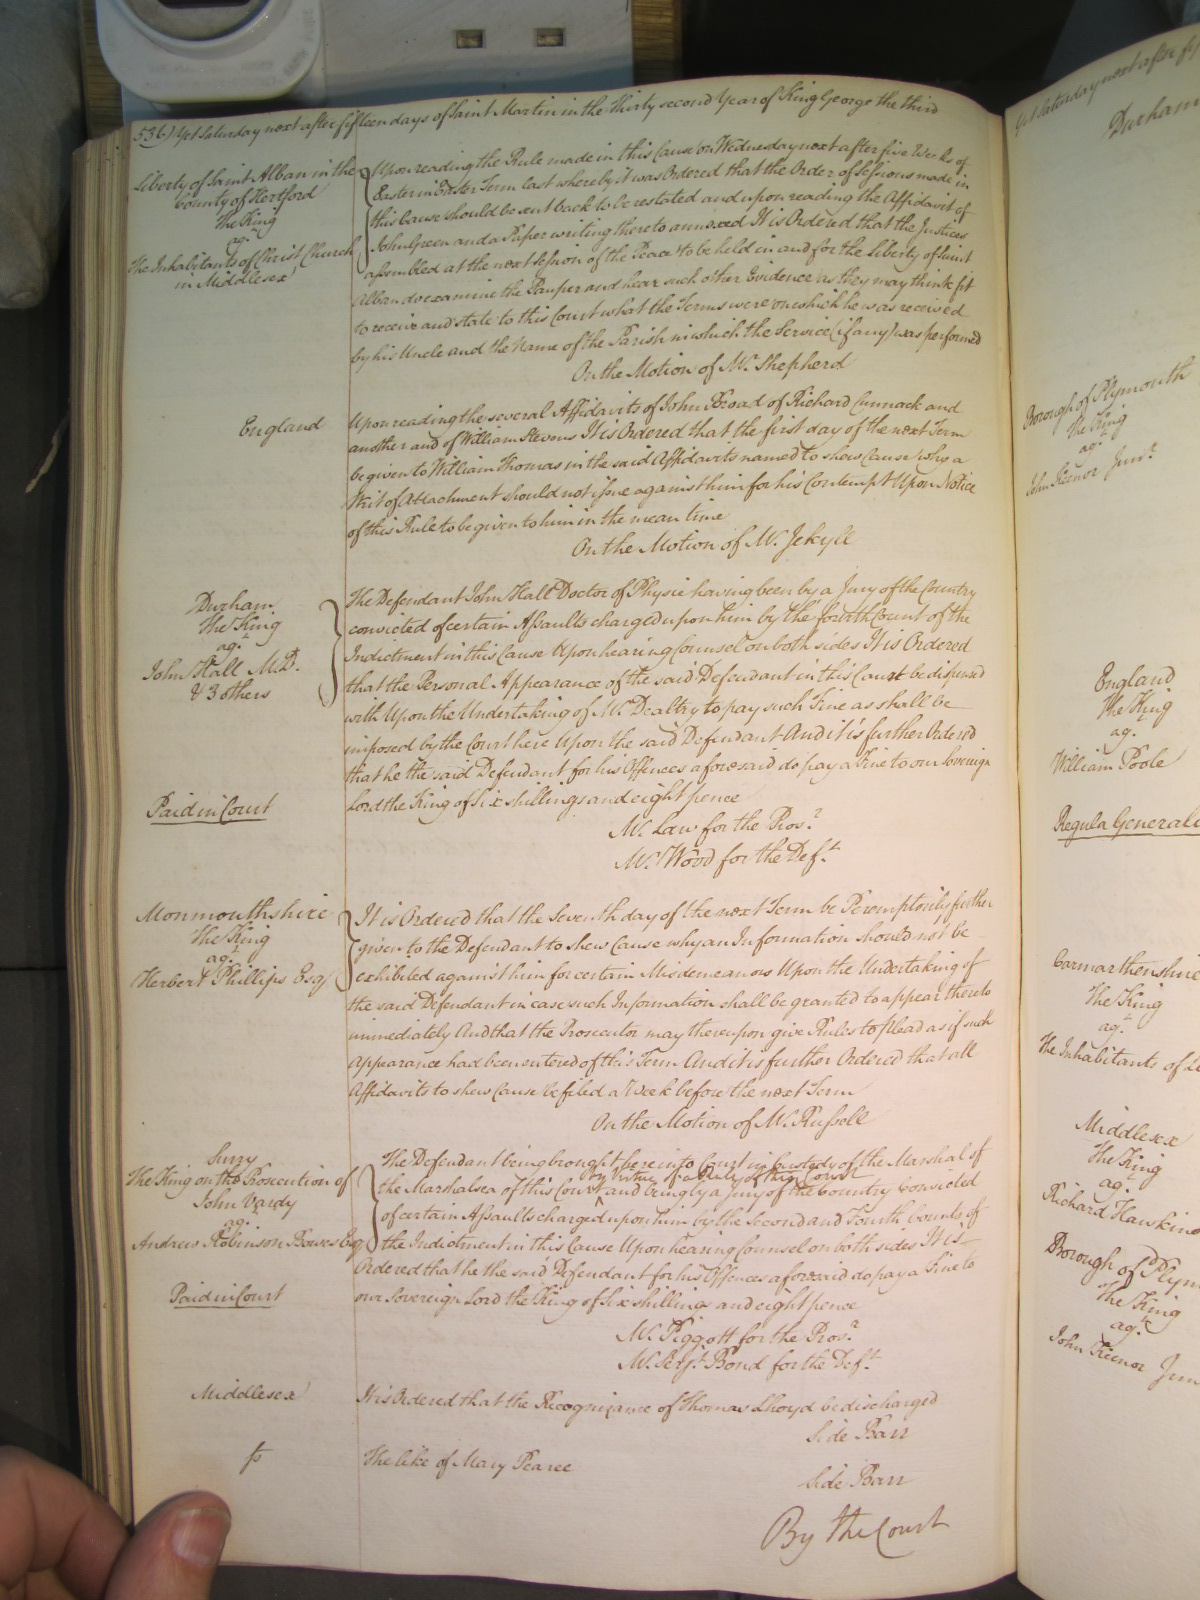 536) Yet Saturday next after fifteen days of Saint Martin in the Thirty second Year of King George the third
Liberty of Saint Alban in the
County of Hertford
The King
agt.
The Inhabitants of Christ Church
in Middlesex
Upon reading the Rule made in this Cause on Wednesday next after five Weeks of
Easter in Easter Term last whereby it was Ordered that the Order of Sessions made in
this Cause should be sent back to be restated and upon reading the Affidavit of
John Green and a Paper writing thereto annexed It is Ordered that the Justices
assembled at the next Session of the Peace to be held in and for the Liberty of Saint
Alban do examine the Pauper and hear such other Evidence as they may think fit
to receive and state to this Court what the Terms were on which he was received
by his Uncle and the Name of the Parish in which the Service (if any) was performed
On the Motion of Mr. Shepherd
England
Upon reading the several Affidavits of John Broad of Richard Cunnack and
another and of William Stevens It is Ordered that the first day of the next Term
be given to William Thomas in the said Affidavits named to shew Cause why a
Writ of Attachment should not issue against him for his Contempt Upon Notice
of this Rule to be given to him in the mean time
On the Motion of Mr. Jekyll
Durham
The King
agt.
John Hall M.D.
& 3 others
The Defendant John Hall Doctor of Physic having been by a Jury of the Country
convicted of certain Assaults charged upon him by the fourth Count of the
Indictment in this Cause Upon hearing Counsel on both sides It is Ordered
that the Personal Appearance of the said Defendant in this Court be dispensed
with Upon the Undertaking of Mr. Dealtry to pay such Fine as shall be
imposed by the Court here Upon the said Defendant And it is further Ordered
that he the said Defendant for his Offences aforesaid do pay a Fine to our Sovereign
Lord the King of Six shillings and eight pence
Paid in Court
Mr. Law for the Prosr.
Mr. Wood for the Deft.
Monmouthshire
The King
agt.
Herbert Phillips Esqr.
It is Ordered that the Seventh day of the next Term be Peremptorily further
given to the Defendant to shew Cause why an Information should not be
exhibited against him for certain Misdemeanors Upon the Undertaking of
the said Defendant in case such Information shall be granted to appear thereto
immediately And that the Prosecutor may thereupon give Rules to plead as if such
Appearance had been entered of this Term And it is further Ordered that all
Affidavits to shew Cause be filed a Week before the next Term
On the Motion of Mr. Russell
Surry
The King on the Prosecution of
John Vardy
agt.
Andrew Robinson Bowes Esqr.
The Defendant being brought here into Court in Custody of the Marshal of
by Virtue of a Rule of this Court
the Marshalsea of this Court ^ and being by a Jury of the Country Convicted
of certain Assaults charged upon him by the Second and Fourth Counts of
the Indictment in this Cause Upon hearing Counsel on both sides It is
Ordered that he the said Defendant for his Offences aforesaid do pay a Fine to
our Sovereign Lord the King of Six shillings and eight pence
Paid in Court
Mr. Piggott for the Prosr.
Mr. Serjt. Bond for the Deft.
Middlesex
It is Ordered that the Recognizance of Thomas Lhoyd be discharged
Side Barr
The like of Mary Pearce
Side Barr
By the Court
Yet Saturday next after
Durham
Borough of Plymouth
The King
agt.
John Keenor Junr.
England
The King
agt.
William Poole
Regula Generalis
Carmarthenshire
The King
agt.
The Inhabitants of
Middlesex
The King
agt.
Richard Hawkins
Borough of Plym
The King
agt.
John Keenor Jun